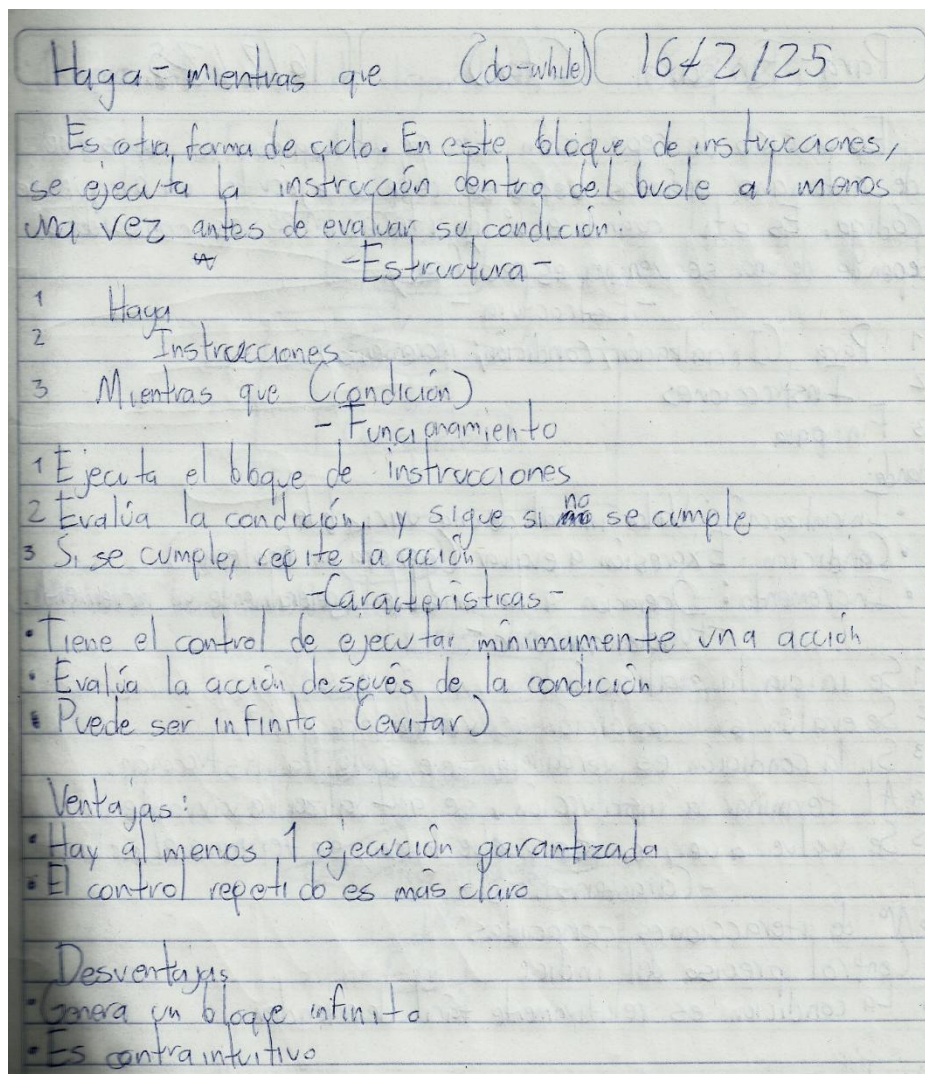 Haga - mientras que (do-while) 16/2/25
Es otra forma de ciclo. En este bloque de instrucciones,
se ejecuta la instrucción dentro del bucle al menos
una vez antes de evaluar su condición.
-Estructura-
1 Haga
2 Instrucciones
3 Mientras que (condición)
- Funcionamiento
1 Ejecuta el bloque de instrucciones
2 Evalúa la condición, y sigue si no se cumple
3 Si se cumple, repite la acción
-Características-
• Tiene el control de ejecutar mínimamente una acción
• Evalúa la acción después de la condición
• Puede ser infinito (evitar)
Ventajas:
• Hay al menos 1 ejecución garantizada
• El control repetido es más claro
Desventajas
• Genera un bloque infinito
• Es contraintuitivo